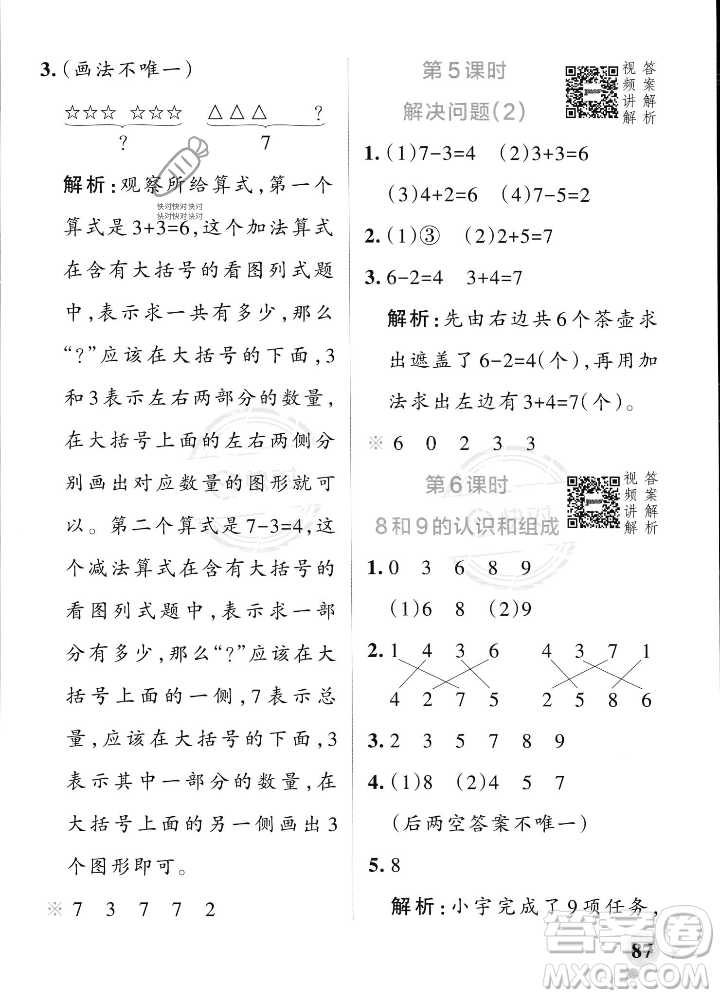 3.(画法不唯一)
☆☆☆ ☆☆☆ △△△ ?
? 7
快对快对快对
快对快对快对
解析:观察所给算式,第一个
算式是3+3=6,这个加法算式
在含有大括号的看图列式题
中,表示求一共有多少,那么
“?”应该在大括号的下面,3
和3表示左右两部分的数量,
在大括号上面的左右两侧分
别画出对应数量的图形就可
以。第二个算式是7-3=4,这
个减法算式在含有大括号的
看图列式题中,表示求一部
分有多少,那么“?”应该在大
括号上面的一侧,7表示总
量,应该在大括号的下面,3
表示其中一部分的数量,在
大括号上面的另一侧画出3
个图形即可。
※ 7 3 7 7 2
第5课时
解决问题(2)
视频讲解
答案解析
1.(1)7-3=4 (2)3+3=6
(3)4+2=6 (4)7-5=2
2.(1)③ (2)2+5=7
3.6-2=4 3+4=7
解析:先由右边共6个茶壶求
出遮盖了6-2=4(个),再用加
法求出左边有3+4=7(个)。
※ 6 0 2 3 3
第6课时
8和9的认识和组成
视频讲解
答案解析
1.0 3 6 8 9
(1)6 8 (2)9
2.1 4 3 6 4 3 7 1
4 2 7 5 2 5 8 6
3.2 3 5 7 8 9
4.(1)8 (2)4 5 7
(后两空答案不唯一)
5.8
解析:小宇完成了9项任务,
87
答案圈
MXQE.COM